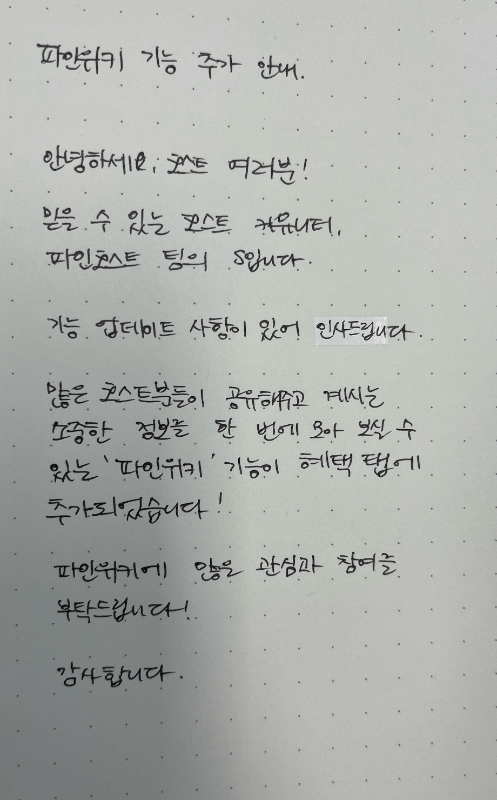 파인위키 기능 추가 안내.
안녕하세요, 호스트 여러분!
믿을 수 있는 호스트 커뮤니티,
파인호스트 팀의 S입니다.
기능 업데이트 사항이 있어 인사드립니다.
많은 호스트분들이 공유해주고 계시는
소중한 정보를 한 번에 모아 보실 수
있는 '파인위키' 기능이 혜택 탭에
추가되었습니다!
파인위키에 많은 관심과 참여를
부탁드립니다!
감사합니다.